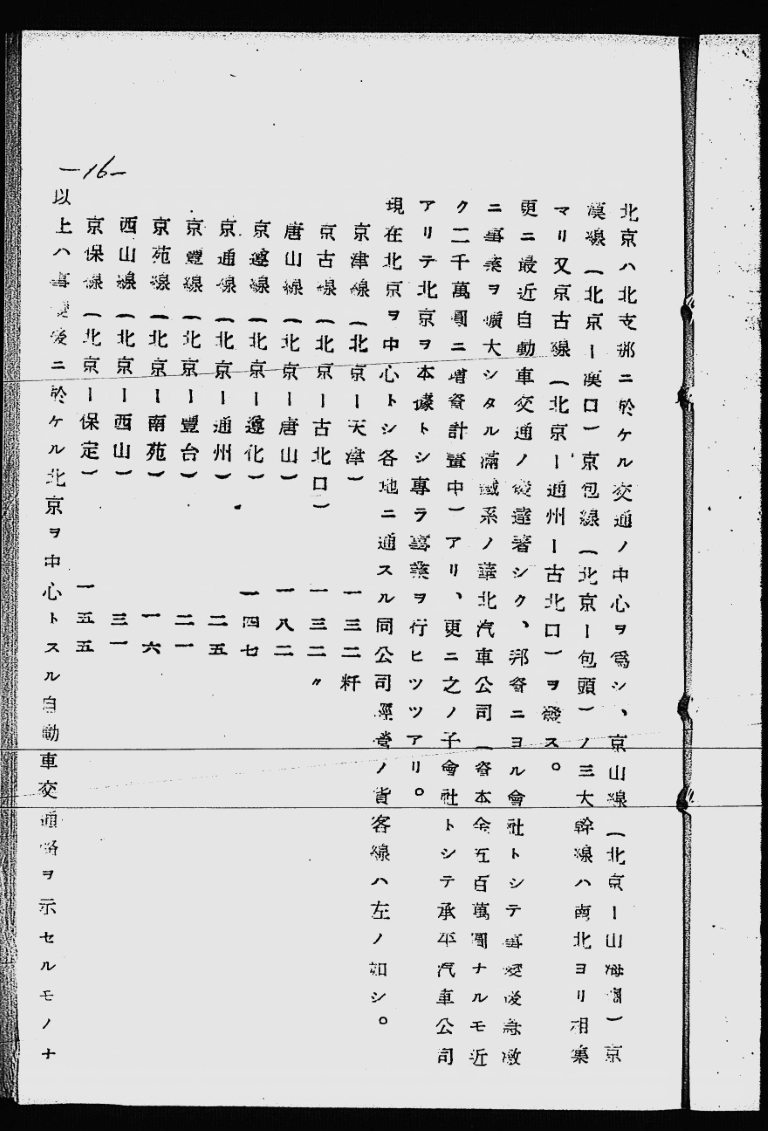 北京ハ北支那ニ於ケル交通ノ中心ヲ為シ、京山線(北京ー山海關)京
漢線(北京ー漢口)京包線(北京ー包頭)ノ三大幹線ハ南北ヨリ相集
マリ又京古線(北京ー通州ー古北口)ヲ發ス。
更ニ最近自動車交通ノ發達著シク、邦資ニヨル會社トシテ事變後急激
ニ事業ヲ擴大シタル滿鐵系ノ華北汽車公司(資本金五百萬圓ナルモ近
ク二千萬圓ニ增資計畫中)アリ、更ニ之ノ子會社トシテ承平汽車公司
アリテ北京ヲ本據トシ專ラ事業ヲ行ヒツツアリ。
現在北京ヲ中心トシ各地ニ通スル同公司經營ノ貨客線ハ左ノ如シ。
京津線(北京ー天津) 一三二粁
京古線(北京ー古北口) 一三二〃
唐山線(北京ー唐山) 一八二
京遵線(北京ー遵化) 一四七
京通線(北京ー通州) 二五
京豐線(北京ー豐台) 二一
京苑線(北京ー南苑) 一六
西山線(北京ー西山) 三一
京保線(北京ー保定) 一五五
以上ハ事變後ニ於ケル北京ヲ中心トスル自動車交通路ヲ示セルモノナ
—16—